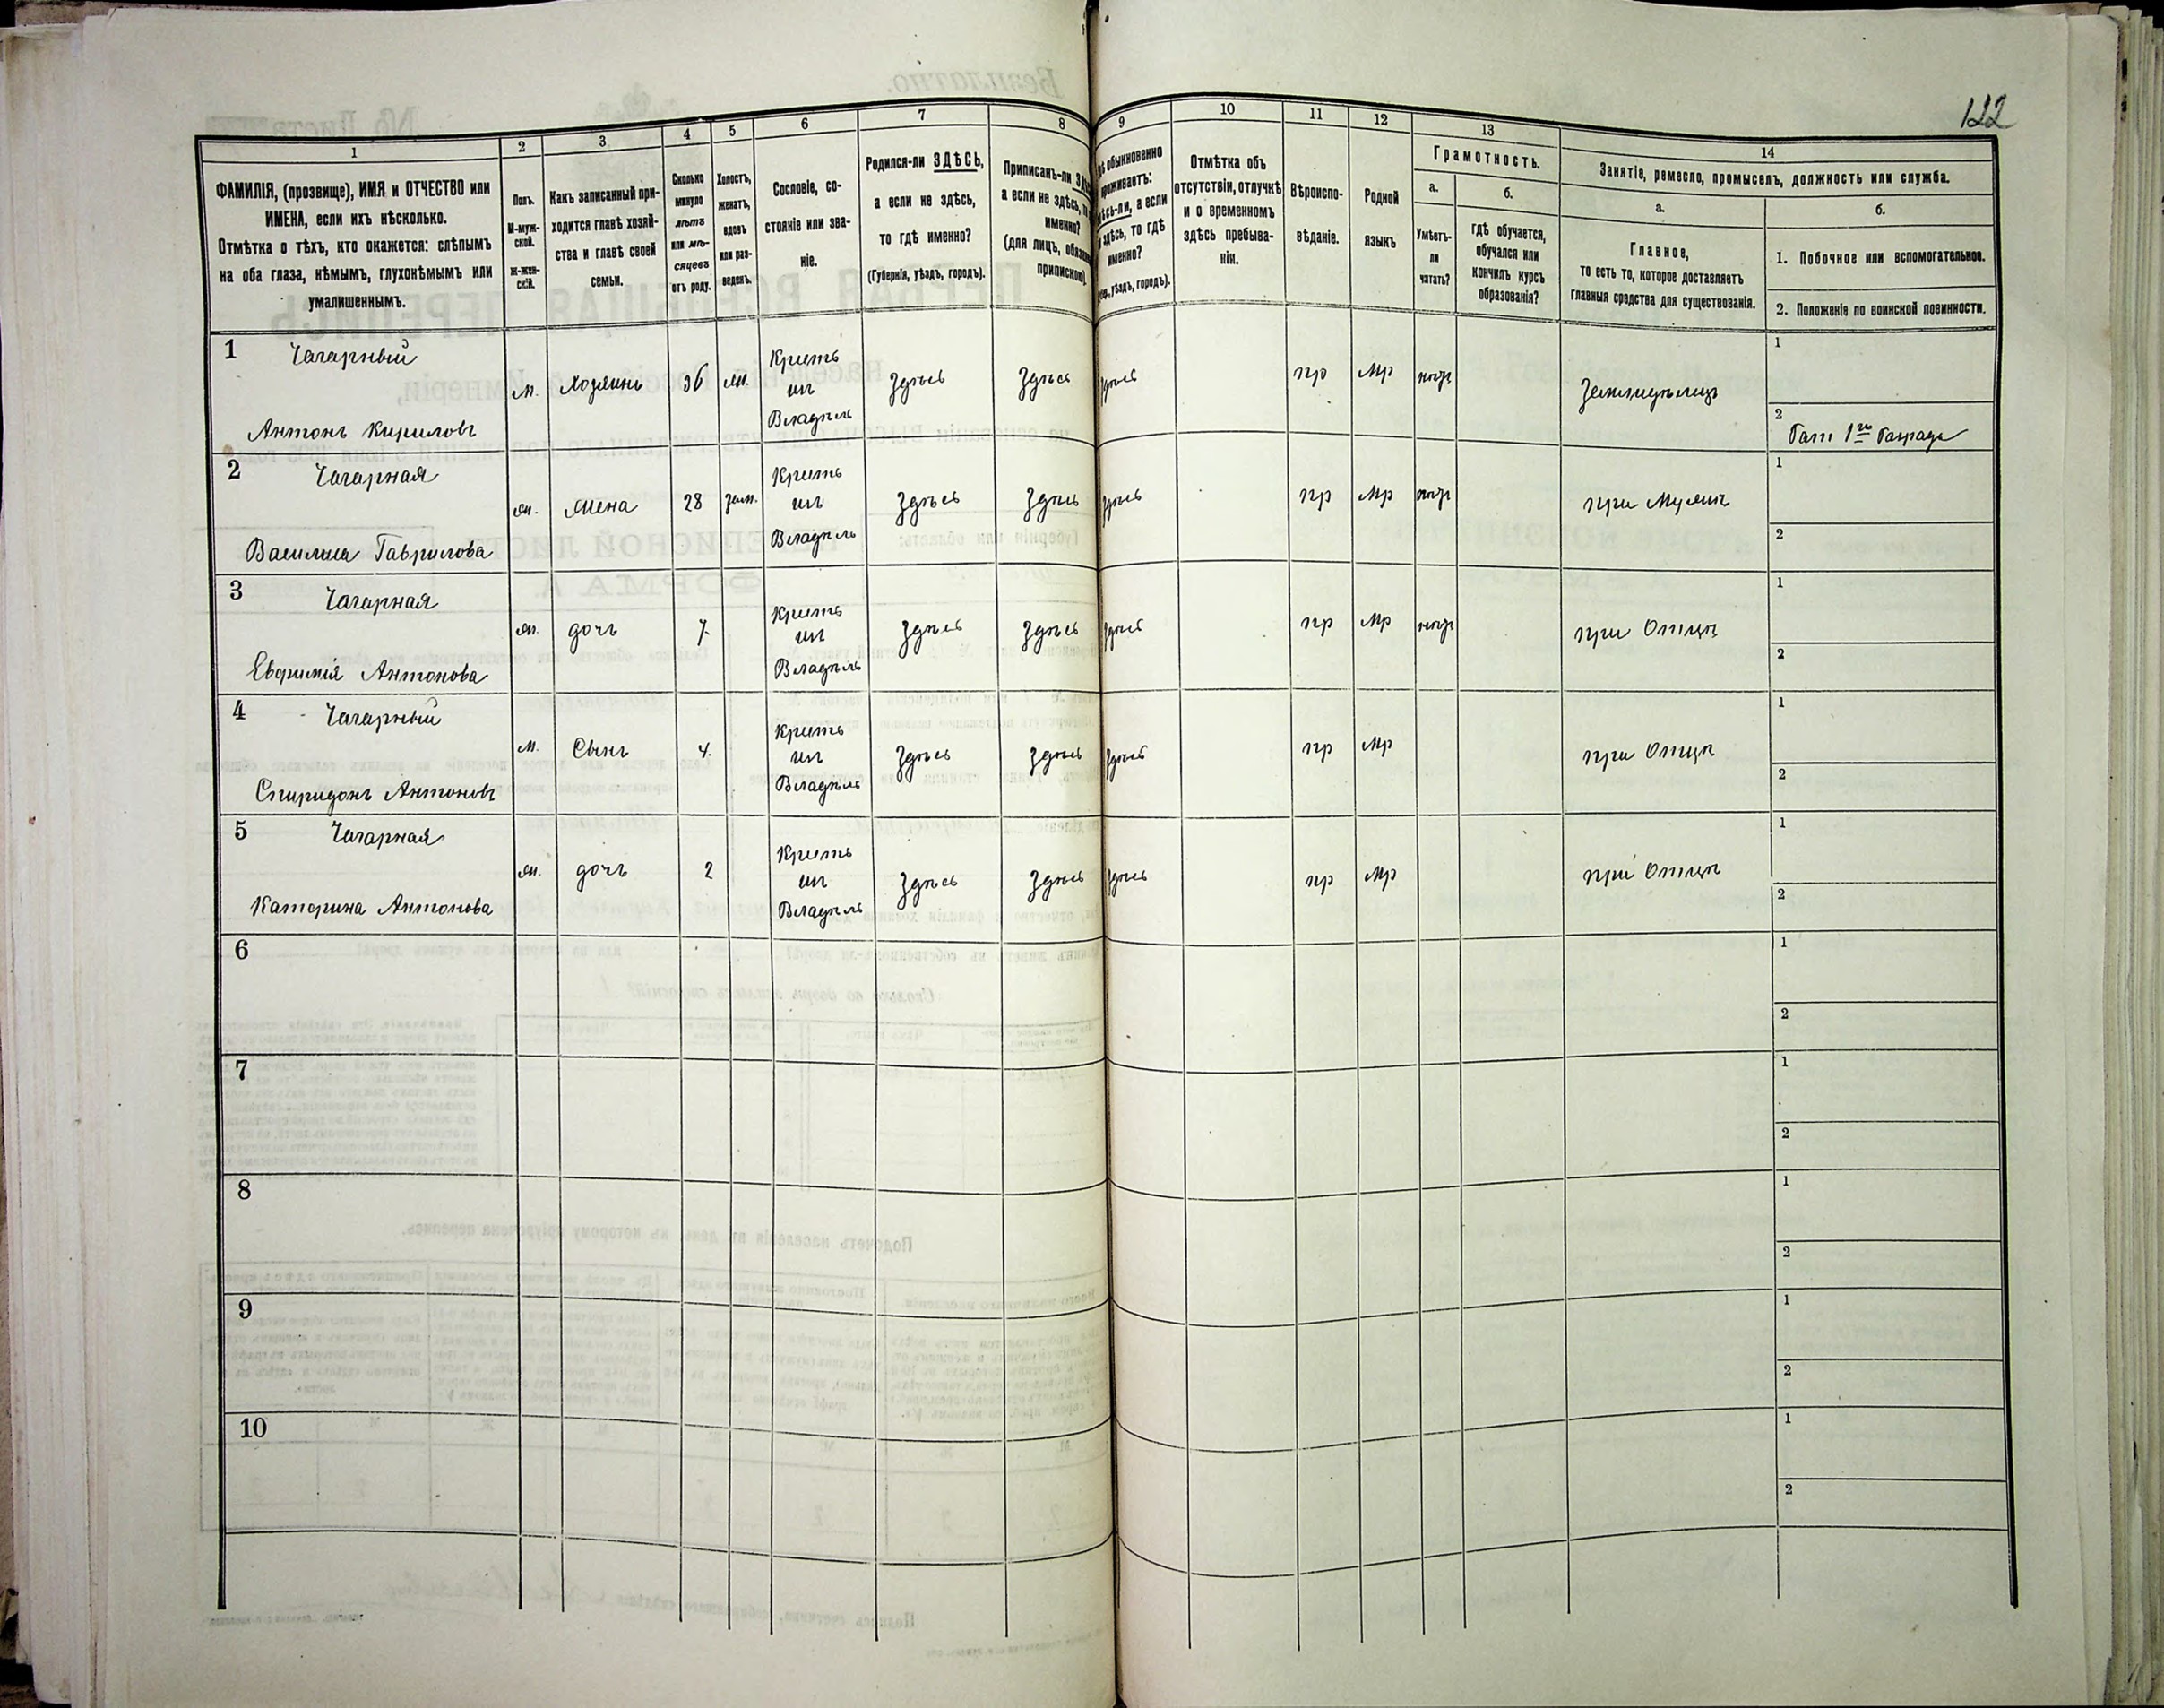 122
1
2
3
4
5
6
7
8
9
10
11
12
13
14
ФАМИЛІЯ, (прозвище), ИМЯ и ОТЧЕСТВО или
ИМЕНА, если ихъ нѣсколько.
Отмѣтка о тѣхъ, кто окажется: слѣпымъ
на оба глаза, нѣмымъ, глухонѣмымъ или
умалишеннымъ.
Полъ.
М-муж-
ской.
Ж-жен-
скій.
Какъ записанный при-
ходится главѣ хозяй-
ства и главѣ своей
семьи.
Сколько
минуло
лѣтъ
или мѣ-
сяцевъ
отъ роду.
Холостъ,
женатъ,
вдовъ
или раз-
веденъ.
Сословіе, со-
стояніе или зва-
ніе.
Родился-ли ЗДѢСЬ,
а если не здѣсь,
то гдѣ именно?
(Губернія, уѣздъ, городъ).
Приписанъ-ли
а если не здѣсь,
именно?
(для лицъ,
припискою).
обыкновенно
проживаетъ:
здѣсь-ли, а если
здѣсь, то гдѣ
именно?
уѣздъ, городъ).
Отмѣтка объ
отсутствіи, отлучкѣ
и о временномъ
здѣсь пребыва-
ніи.
Вѣроиспо-
вѣданіе.
Родной
языкъ
Грамотность.
а.
Умѣетъ-
ли
читать?
б.
гдѣ обучается,
обучался или
кончилъ курсъ
образованія?
Занятіе, ремесло, промыселъ, должность или служба.
а.
Главное,
то есть то, которое доставляетъ
главныя средства для существованія.
б.
1. Побочное или вспомогательное.
2. Положеніе по воинской повинности.
1
Чагарный
Антонъ Кириловъ
м. хозяинъ 36 жн.
Крстъ
изъ
Владѣль
здѣсь здѣсь здѣсь пр Мр нѣтъ Земледѣлецъ
1
2 Рат 1го Разряда
2
Чагарная
Василиса Гаврилова
ж. жена 28 зам.
Крстъ
изъ
Владѣль
здѣсь здѣсь здѣсь пр Мр нѣтъ при Мужѣ
1
2
3
Чагарная
Евфимія Антонова
ж. дочь 7
Крстъ
изъ
Владѣль
здѣсь здѣсь здѣсь пр Мр нѣтъ при Отцѣ
1
2
4
Чагарный
Спиридонъ Антоновъ
м. Сынъ 4
Крстъ
изъ
Владѣль
здѣсь здѣсь здѣсь пр Мр при Отцѣ
1
2
5
Чагарная
Катерина Антонова
ж. дочь 2
Крстъ
изъ
Владѣль
здѣсь здѣсь здѣсь пр Мр при Отцѣ
1
2
6
1
2
7
1
2
8
1
2
9
1
2
10
1
2